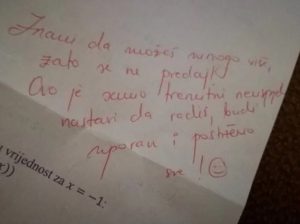 Znam da možeš mnogo više,
zato se ne predaj!
Ovo je samo trenutni neuspjeh
nastavi da radiš, budi
uporan i
sve! ☺
vrijednost za x = −1:
x))